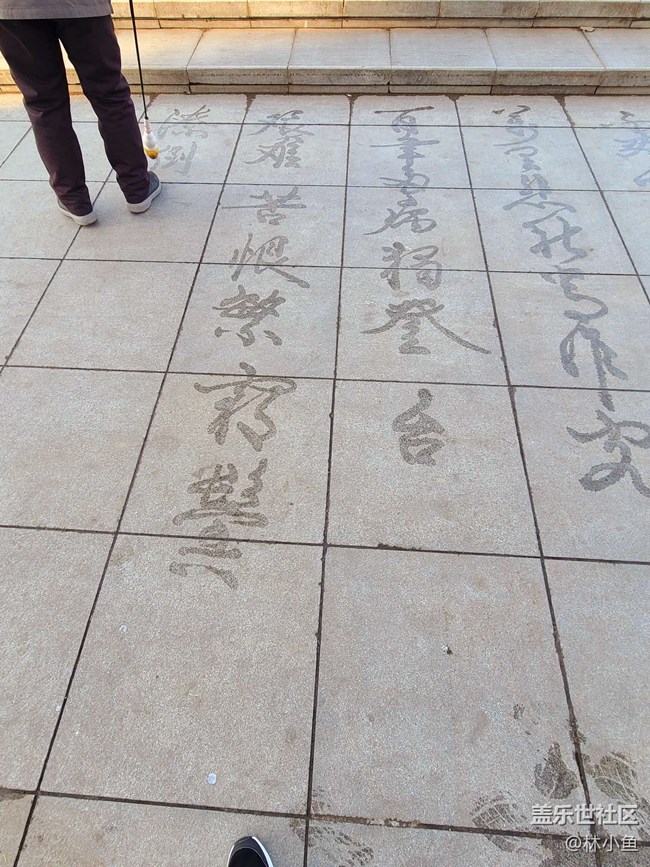 萬里悲秋常作客
百年多病獨登台
艱難苦恨繁霜鬢
潦倒
盖乐世社区
@林小鱼